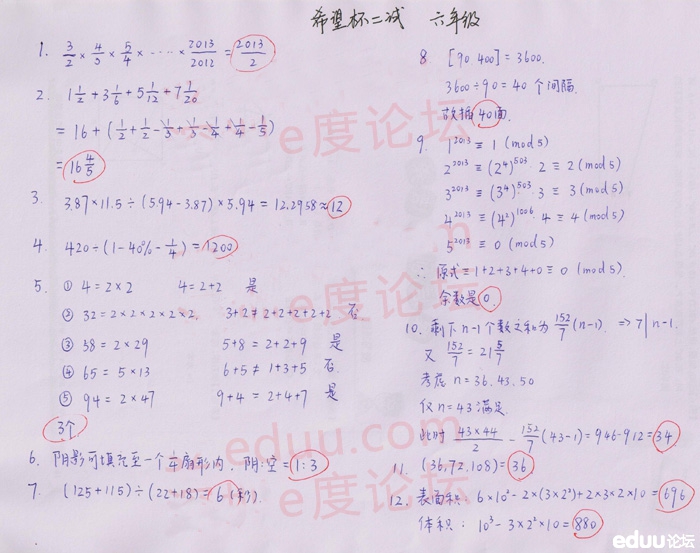 希望杯二试 六年级
1. 3/2 × 4/3 × 5/4 × ······ × 2013/2012 = 2013/2
2. 1 1/2 + 3 1/6 + 5 1/12 + 7 1/20
= 16 + (1/2 + 1/2 - 1/3 + 1/3 - 1/4 + 1/4 - 1/5)
= 16 4/5
3. 3.87×11.5÷(5.94-3.87)×5.94 = 12.2958≈12
4. 420÷(1-40%-1/4) = 1200
5. ① 4=2×2 4=2+2 是
② 32=2×2×2×2×2. 3+2≠2+2+2+2+2 否
③ 38=2×29 5+8=2+2+9 是
④ 65=5×13 6+5≠1+3+5 否.
⑤ 94=2×47 9+4=2+4+7 是
3个
6. 阴影可填充至一个1/4扇形内. 阴:空=1:3
7. (125+115)÷(22+18)=6(秒).
8. [90 400]=3600.
3600÷90=40 个间隔.
故插40面.
9. 1^2013 ≡ 1 (mod 5)
2^2013 ≡ (2^4)^503 · 2 ≡ 2 (mod 5)
3^2013 ≡ (3^4)^503 · 3 ≡ 3 (mod 5)
4^2013 ≡ (4^2)^1006 · 4 ≡ 4 (mod 5)
5^2013 ≡ 0 (mod 5)
∴ 原式≡1+2+3+4+0≡0 (mod 5).
余数是0.
10. 剩下n-1个数之和为 152/7 (n-1). ⇒ 7|n-1.
又 152/7 = 21 5/7
考虑 n=36.43.50
仅n=43满足.
此时 43×44/2 - 152/7 (43-1)=946-912=34
11. (36,72,108)=36
12. 表面积: 6×10²-2×(3×2²)+2×3×2×10=696
体积: 10³-3×2²×10=880
e度论坛
e度论坛
eduu.com
e度论坛
eduu论坛